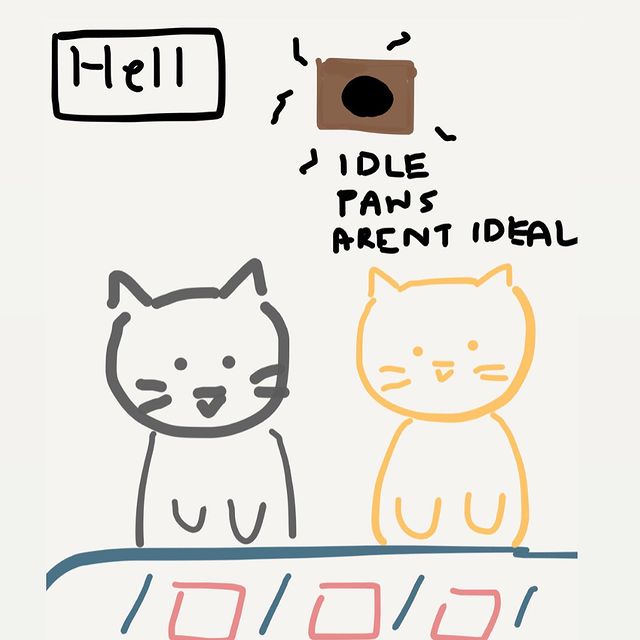 Hell
IDLE
PAWS
ARENT IDEAL